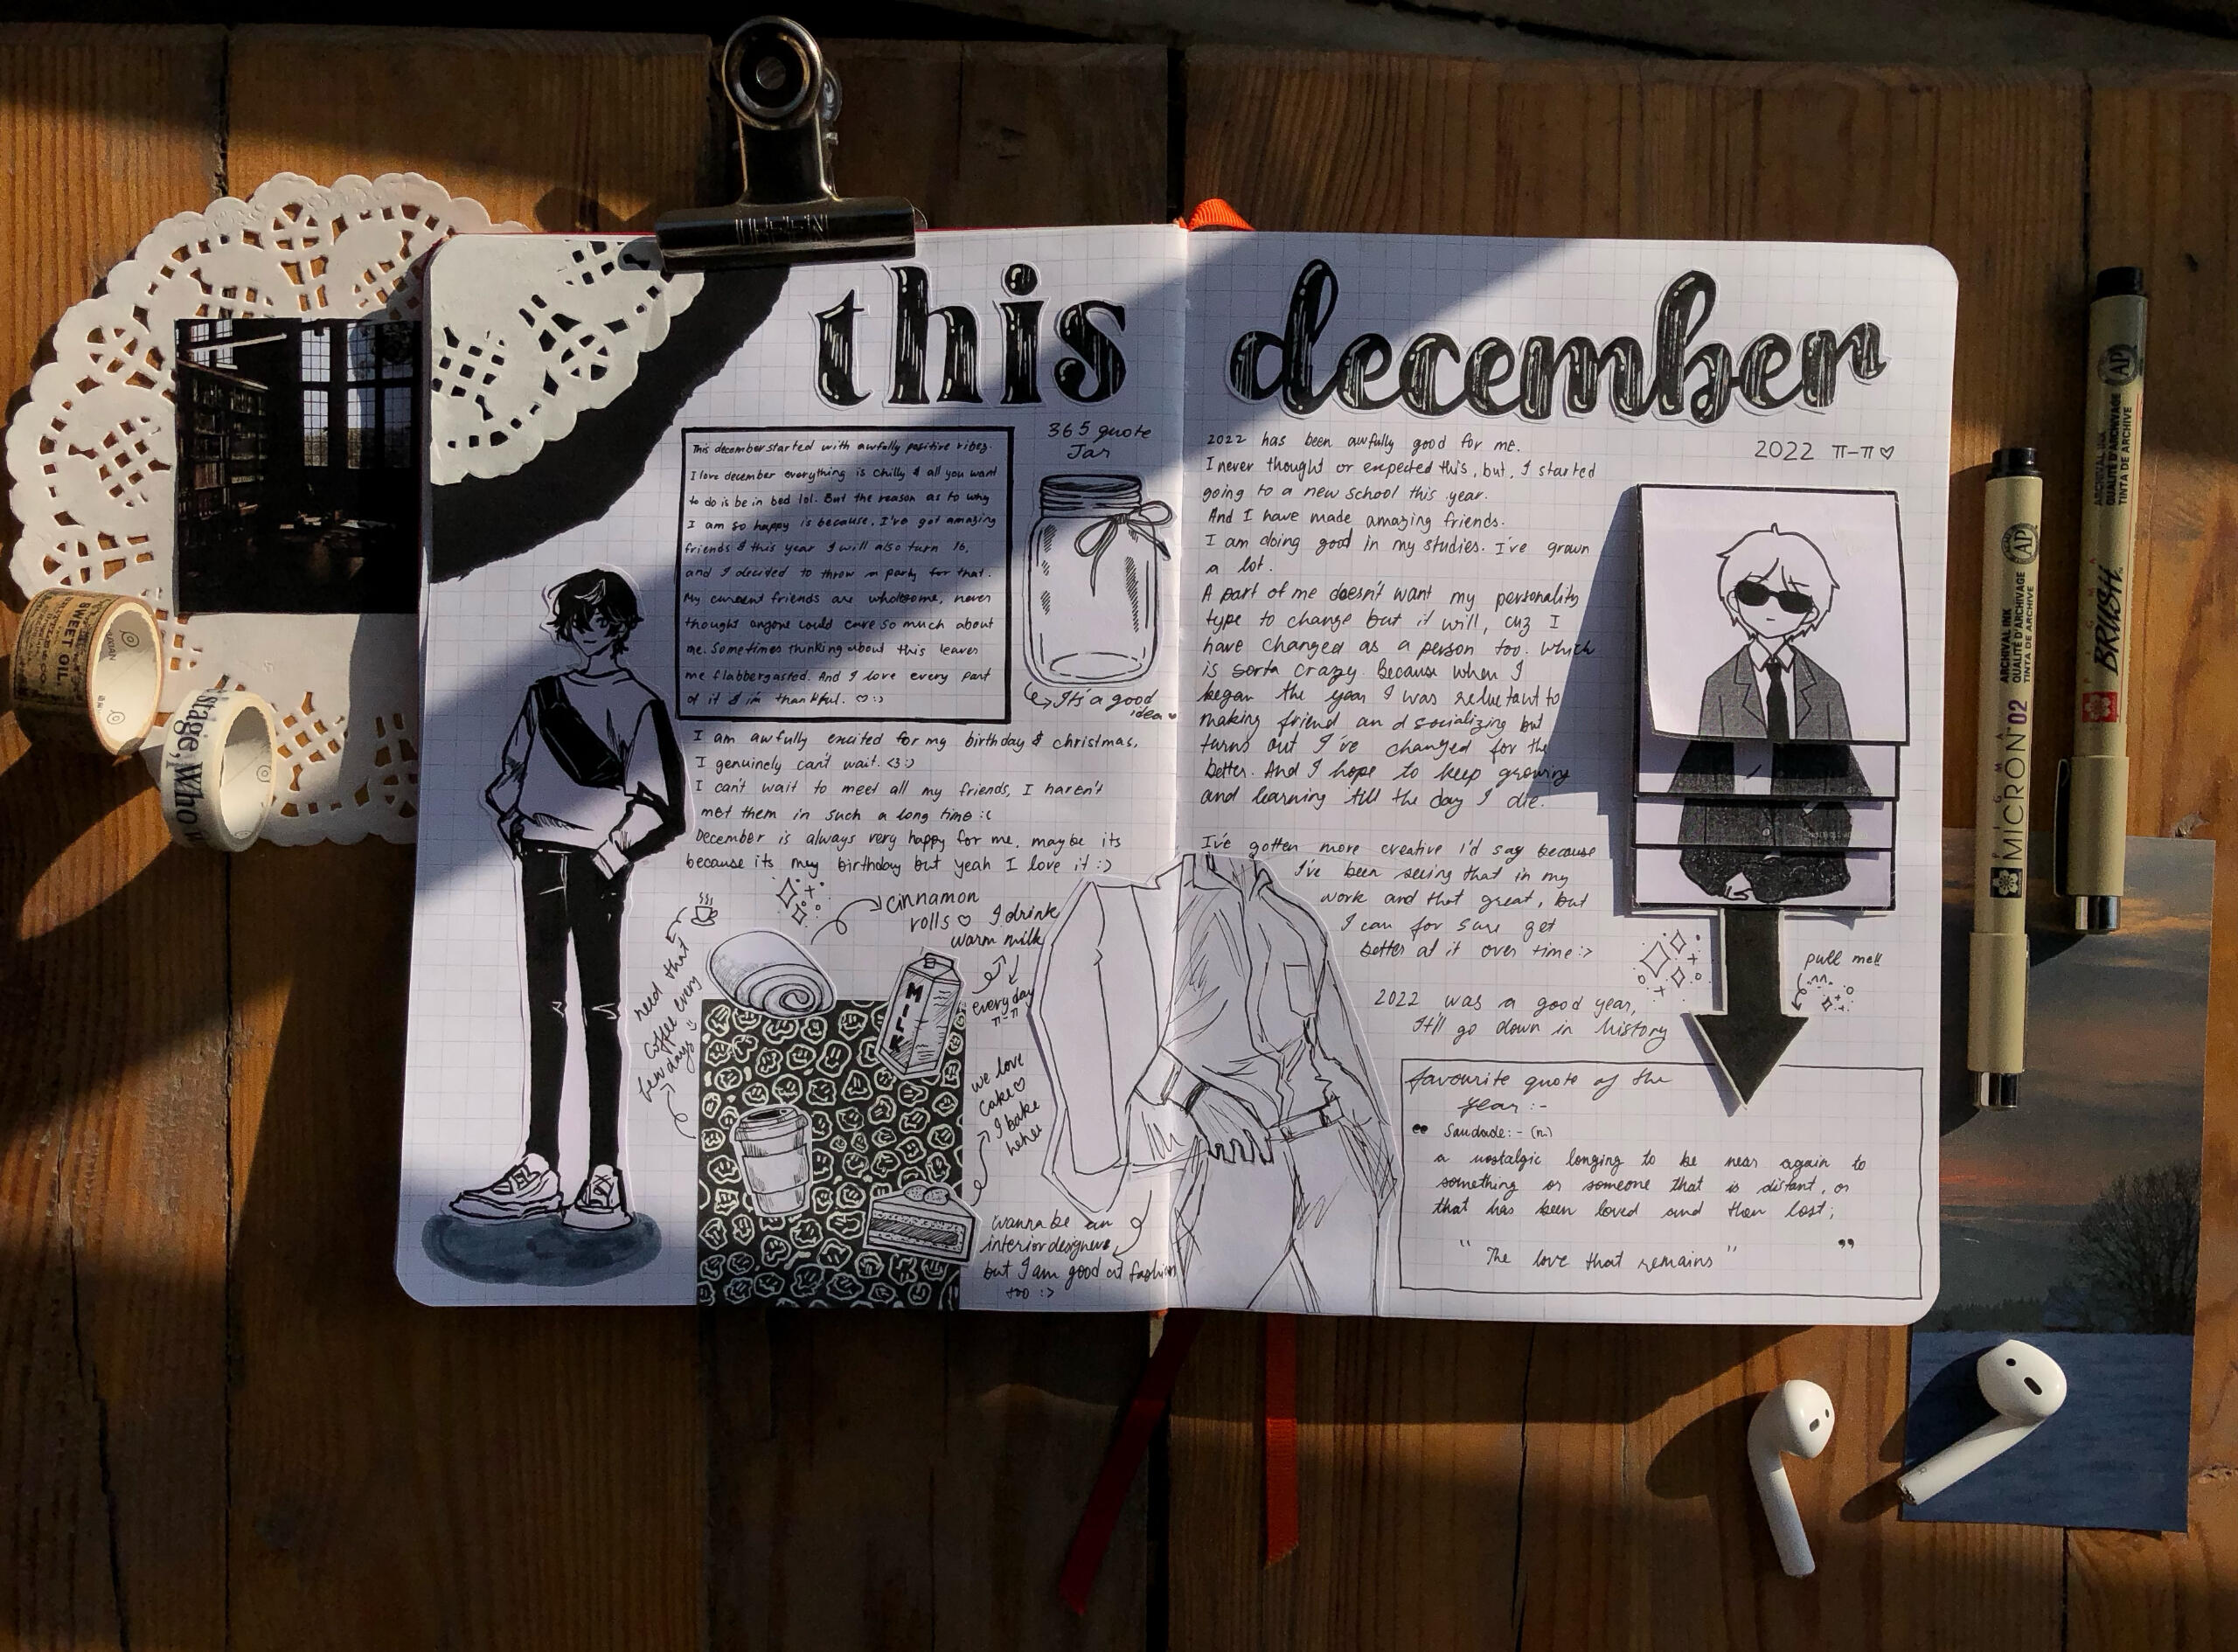 this december
This december started with awfully positive vibez.
I love december everything is chilly & all you want
to do is be in bed lol. But the reason as to why
I am so happy is because, I've got amazing
friends & this year I will also turn 16,
and I decided to throw a party for that.
My current friends are wholesome, never
thought anyone could care so much about
me. Sometimes thinking about this leaves
me flabbergasted. And I love every part
of it & i'm thankful. ♡:)
365 quote
Jar
It's a good
idea
I am awfully excited for my birthday & christmas.
I genuinely can't wait. <3:)
I can't wait to meet all my friends, I haren't
met them in such a long time :(
December is always very happy for me, maybe its
because its my birthday but yeah I love it :)
need that
coffee every
few days
cinnamon
rolls ♡
I drink
warm milk
everyday
π-π
MILK
we love
cake♡
I bake
wanna be an
interior designer
but I am good at fashion
too :>
2022 has been awfully good for me.
I never thought or expected this, but, I started
going to a new school this year.
And I have made amazing friends.
I am doing good in my studies. I've grown
a lot.
A part of me doesn't want my personality
type to change but it will, cuz I
have changed as a person too. which
is sorta crazy because when I
began the year I was reluctant to
making friend and socializing but
turns out I've changed for the
better. And I hope to keep growing
and learning till the day I die.
I've gotten more creative I'd say because
I've been seeing that in my
work and that great, but
I can for sure get
better at it over time:>
2022 was a good year,
It'll go down in history
2022 π-π♡
pull me!!
favourite quote of the
year :-
“ Saudade:- (n.)
a nostalgic longing to be near again to
something or someone that is distant, or
that has been loved and then lost;
"The love that remains" ”
SWEET OIL
stage, Who
PIGMA MICRON 02
ARCHIVAL INK
QUALITÉ D'ARCHIVAGE
TINTA DE ARCHIVE
AP
PIGMA BRUSH
ARCHIVAL INK
QUALITÉ D'ARCHIVAGE
TINTA DE ARCHIVE
AP